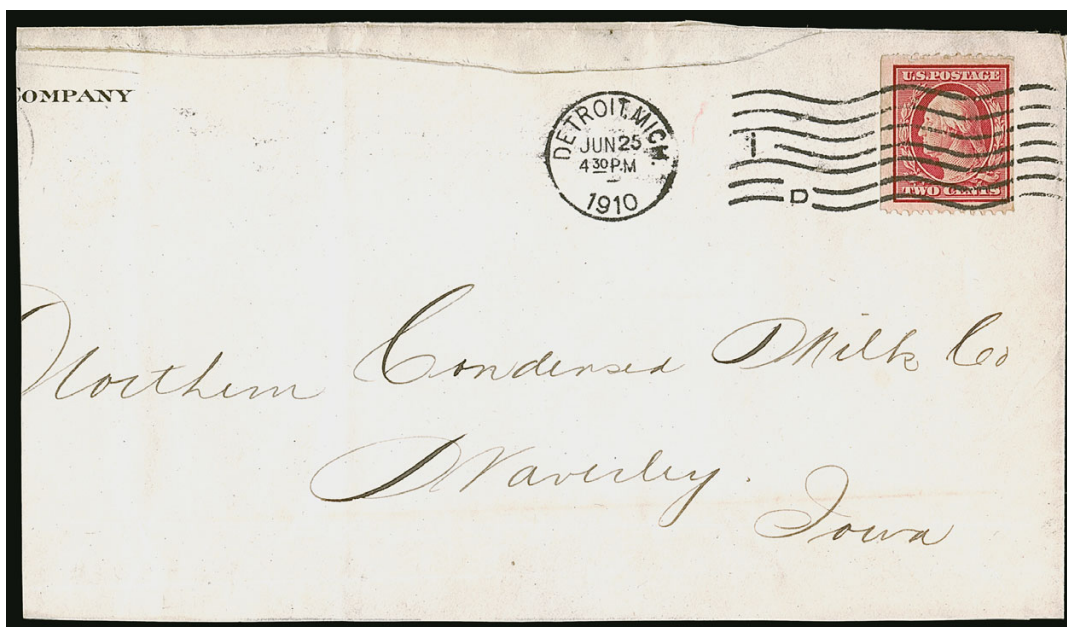 COMPANY
DETROIT, MICH.
JUN 25
4 30 P.M
1910
1
D
U.S. POSTAGE
TWO CENTS
Northern Condensed Milk Co
Waverley.
Iowa